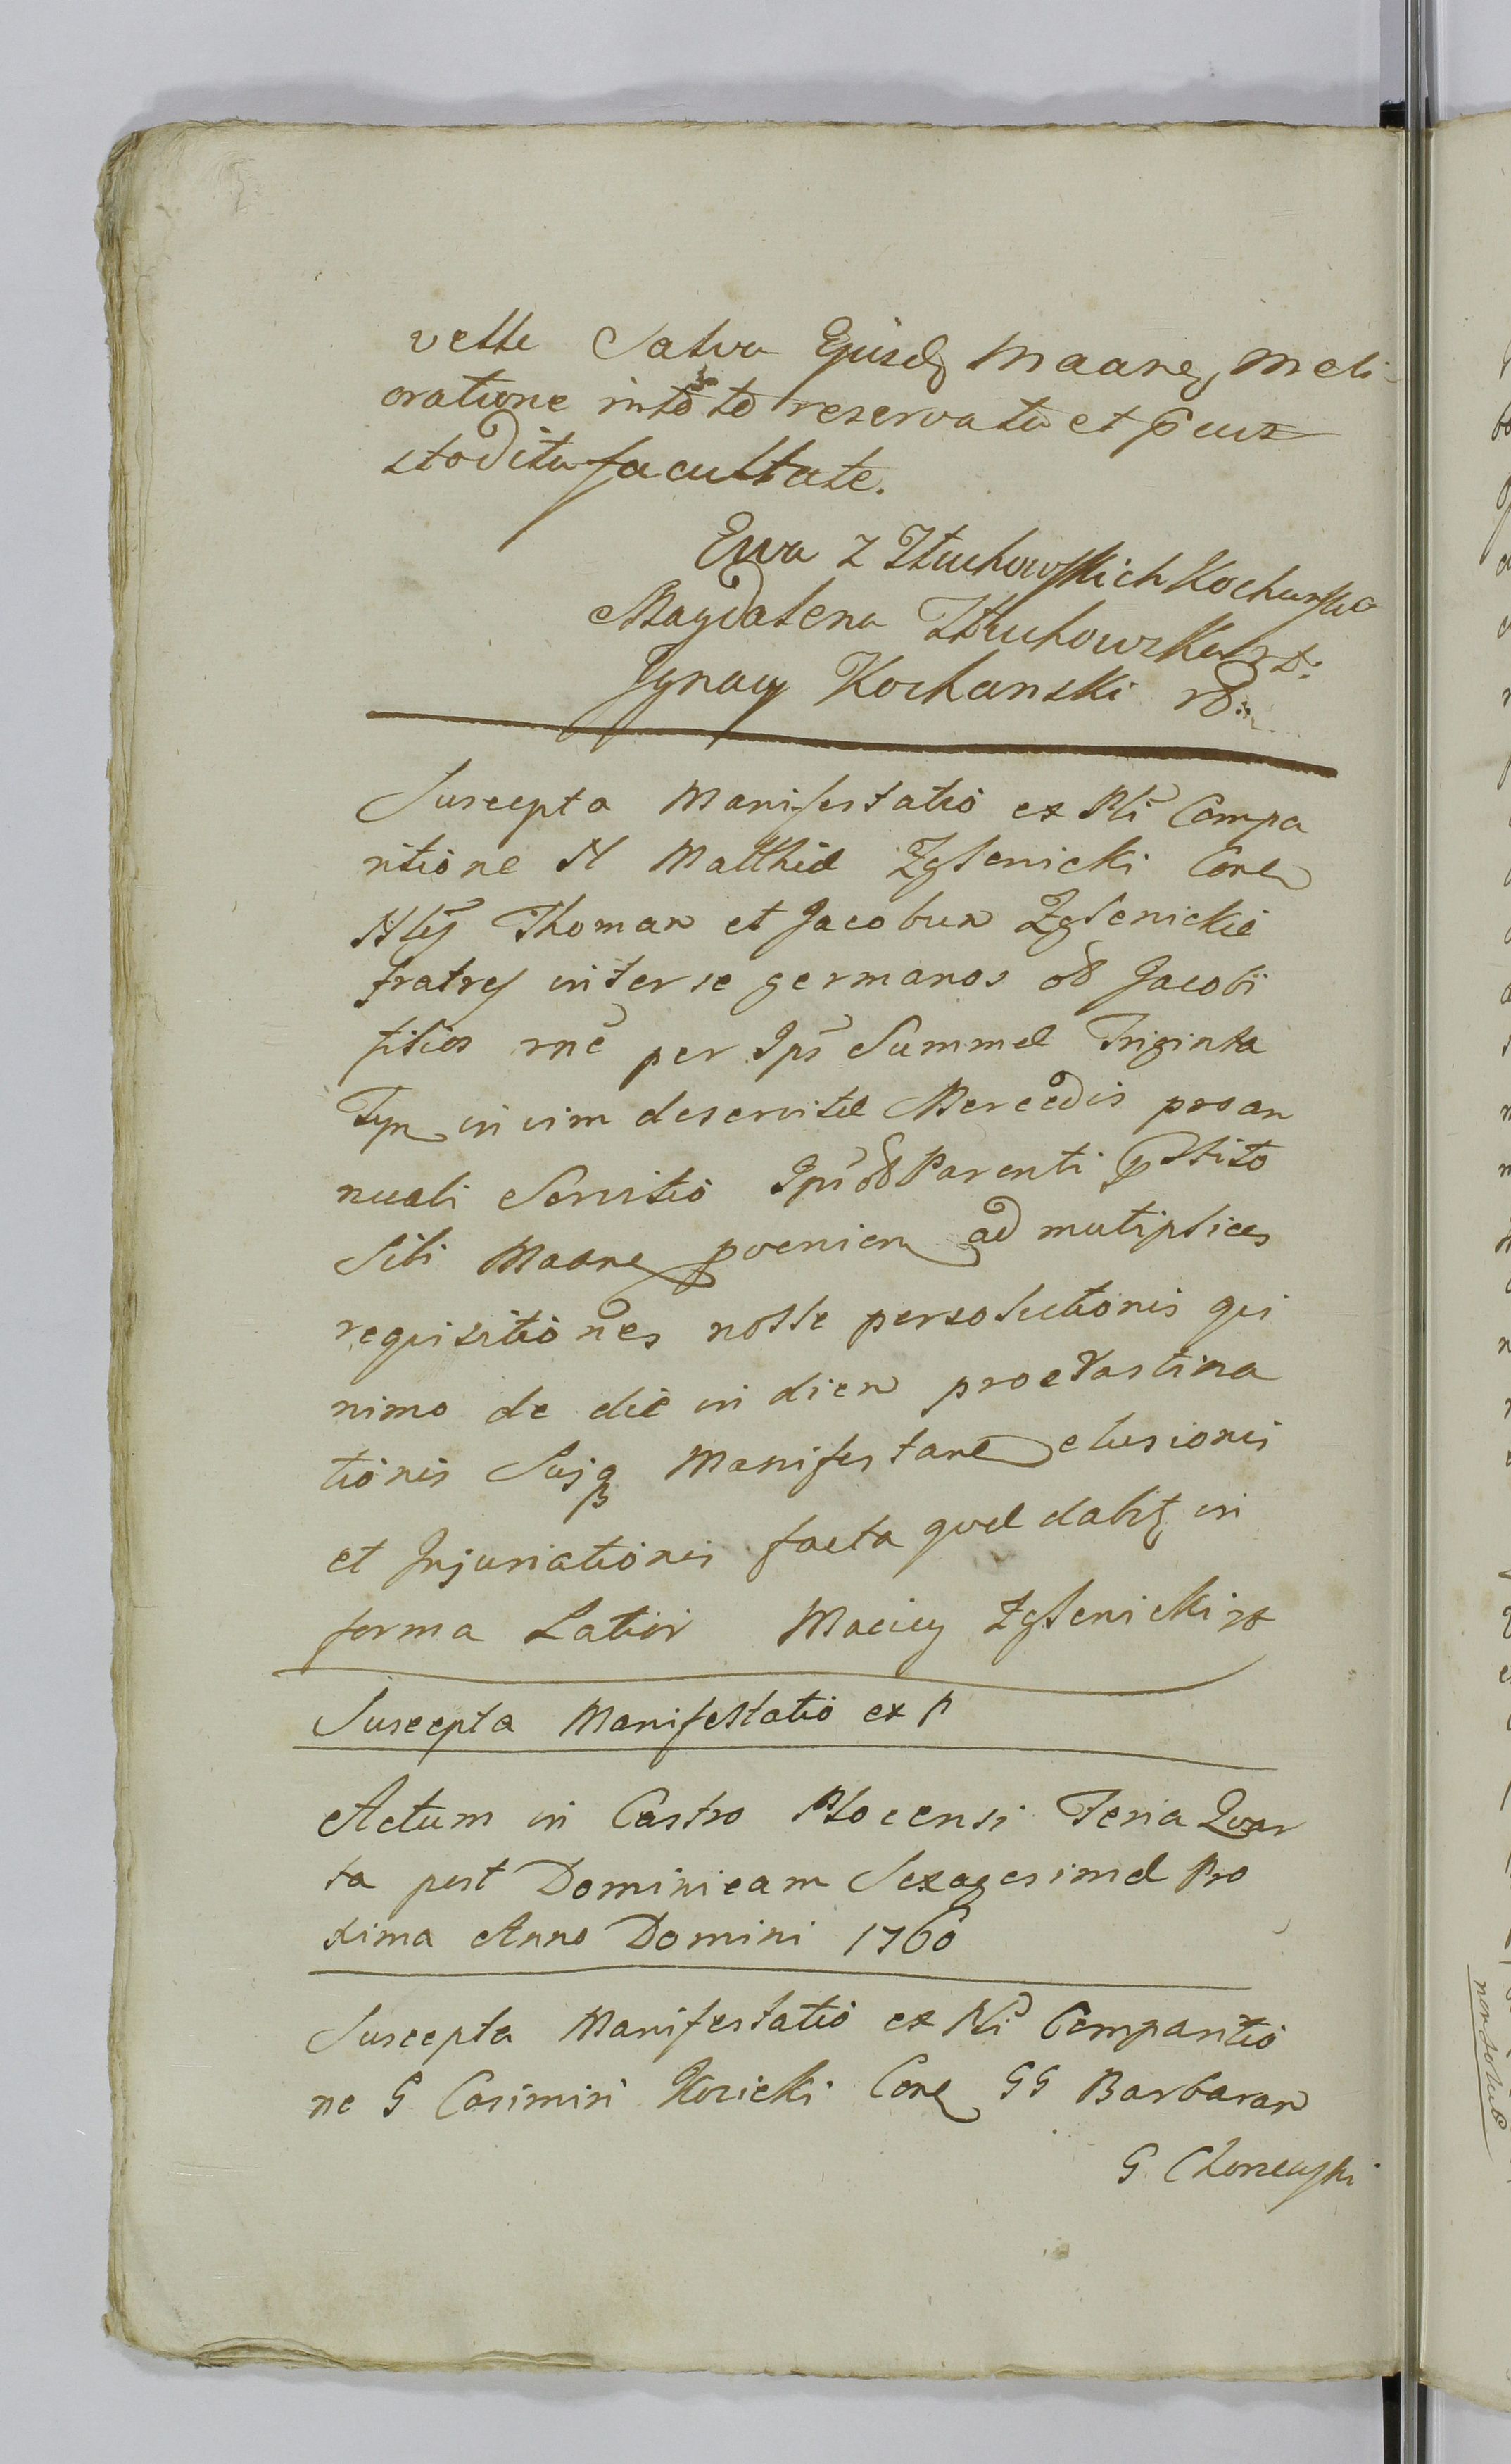 velle Salva Ejusdq Maanes, meli-
oratione in toto reservata et pcus
stodita facultate.
Ewa z Kłuchowskich Kochanska
Magdalena Kłuchowska
Ignacy Kochanski
Suscepta Manifestatio ex Pli Compa
ritione N Matthiæ Zglenicki Con
Nles Thomam et Jacobum Zglenickie
fratres inter se germanos ol Jacobi
filios rne per Ips Summæ Triginta
Tym in vim deservitæ Mercedis pro an
nuali Servitio Ips ol Parenti pstito
Sibi Maane pvenien ad mutiplices
requisitiones nolle persolutionis qui
nimo de die in diem procrastina
tionis Suiq Manifestane elusionis
et Injuriationis facta quæ dabit in
forma Latior Maciey Zglenicki
Suscepta Manifestatio ex P
Actum in Castro Plocensi Feria Quar
ta post Dominicam Sexagesimæ Pro
xima Anno Domini 1760
Suscepta Manifestatio ex Pli Comparitio
ne G Casimiri Kozicki Con GG Barbaram
G Chorzewski
non solub